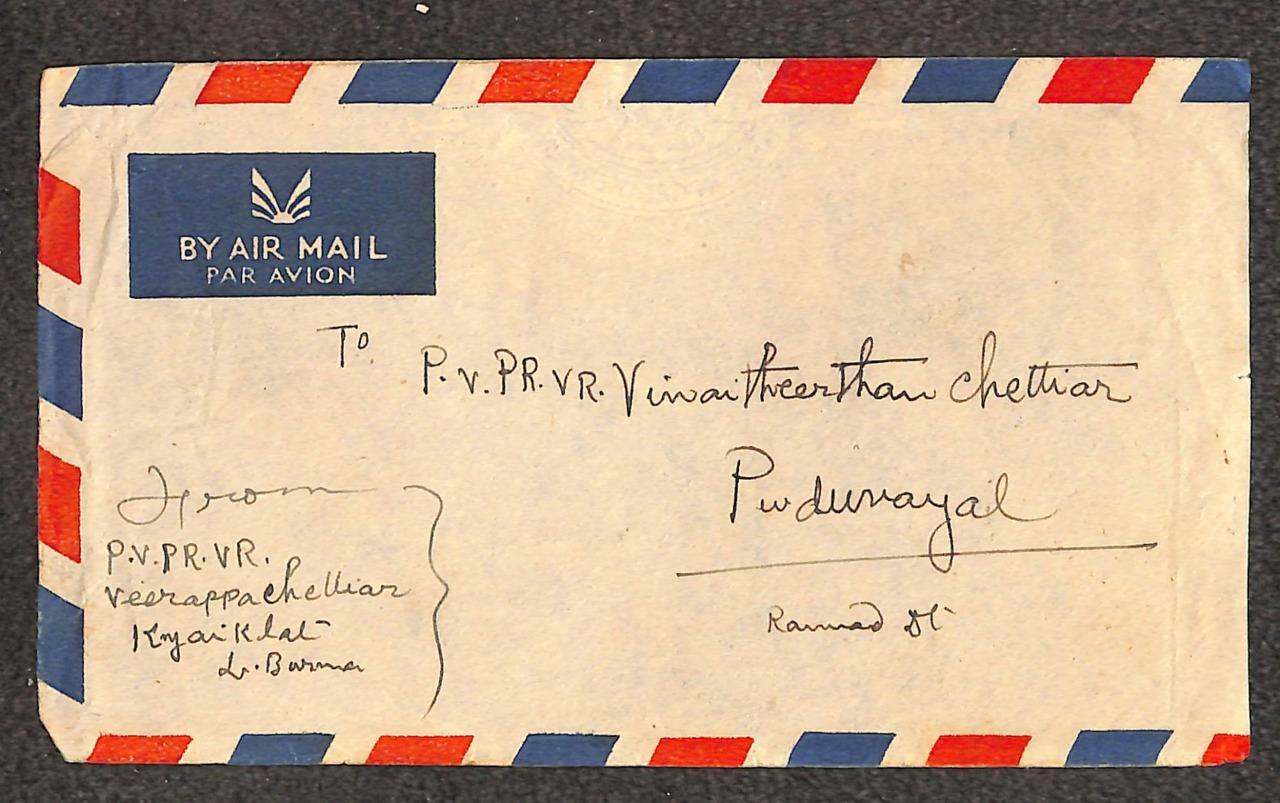 BY AIR MAIL
PAR AVION
To
P. V. PR. VR. Vinaitheerthan Chettiar
Puduvayal
Ramnad Dt
From
P.V. PR. VR.
Veerappa Chettiar
Kyaiklat
L. Burma